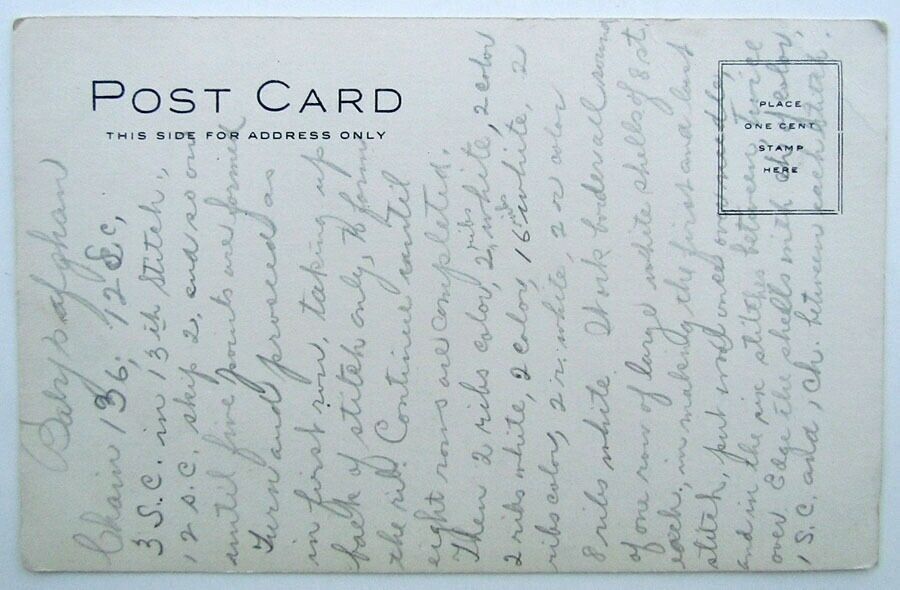 POST CARD
THIS SIDE FOR ADDRESS ONLY
PLACE
ONE CENT
STAMP
HERE
Baby's afghan
Chain 136, 12 S.c,
3 S.C. in 13th stitch,
12 s.c. skip 2, and so on
until five points are formed
Turn and proceed as
in first row, taking up
back of stitch only, to form
the rib. Continue until
eight rows are completed.
Then 2 ribs color, 2 ribs white, 2 color
2 ribs white, 2 color, 16 ribs white, 2
ribs color, 2 r. white, 2 r color
8 ribs white. Work border all round
of one row of large white shells of 8 st.
each, in making the first and last
stitch, put wool once over needle,
and in the six stitches between twice
over. Edge the shells with ch of color,
1 S.C. and 1 Ch. between each stitch.